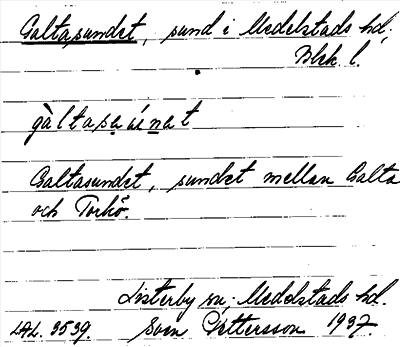 Galtasundet, sund i Medelstads hd,
Blek. l.
gàltasu̱ńn̲ət
Galtasundet, sundet mellan Galta
och Torkö.
Listerby sn, Medelstads hd.
LAL. 3539. Sven Pettersson 1937.